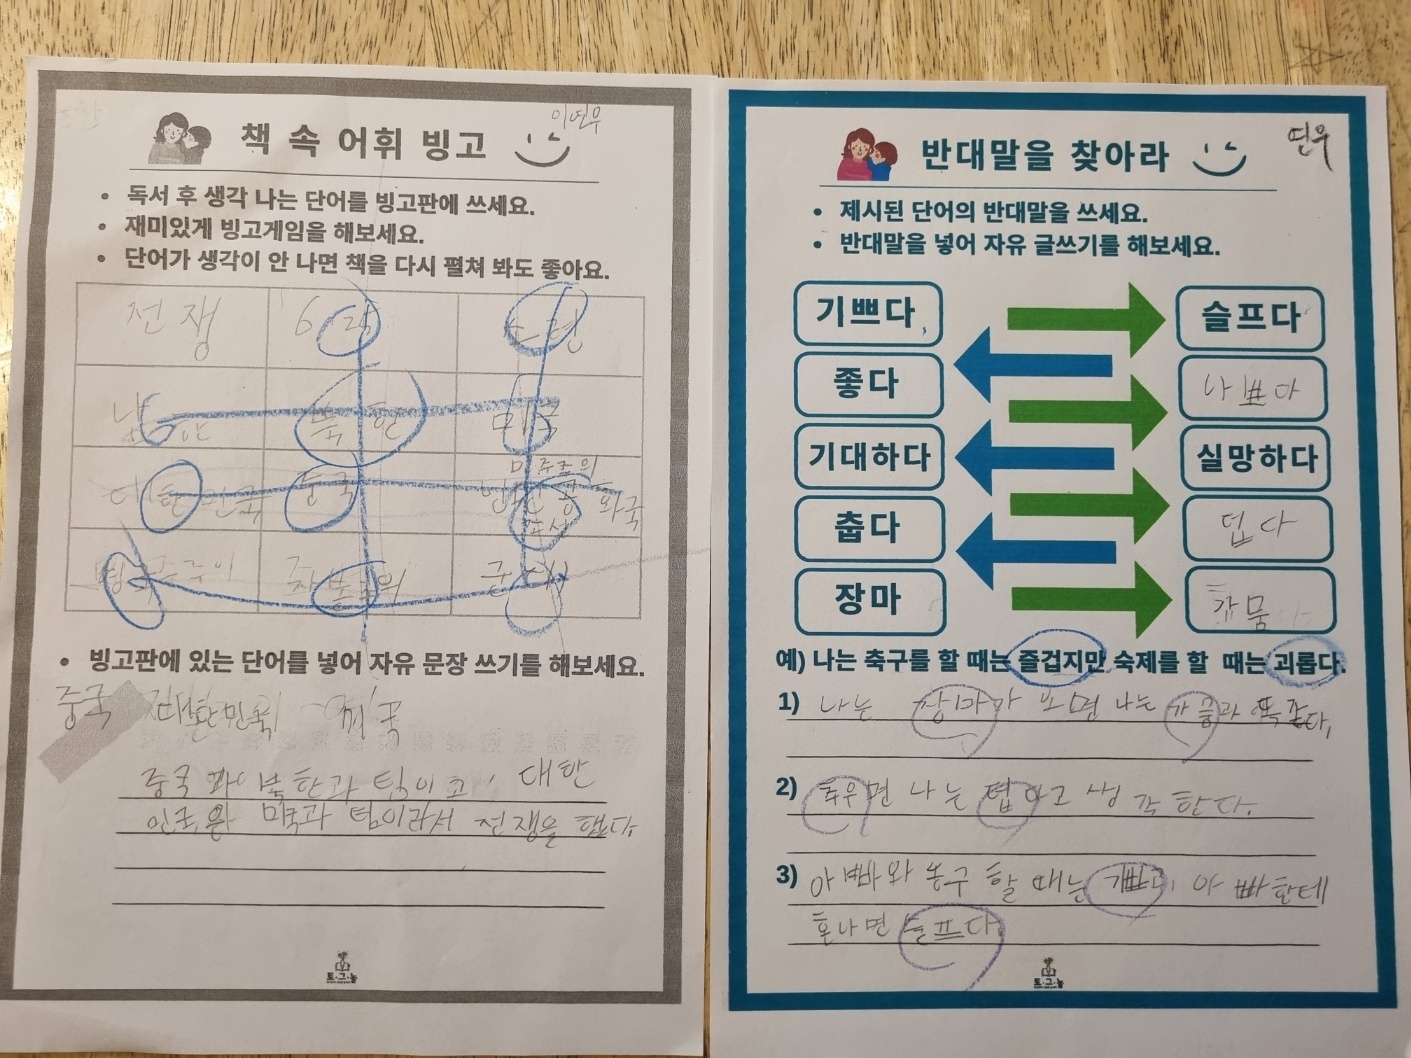 이연우
책 속 어휘 빙고
독서 후 생각 나는 단어를 빙고판에 쓰세요.
재미있게 빙고게임을 해보세요.
단어가 생각이 안 나면 책을 다시 펼쳐 봐도 좋아요.
전쟁 6 25 소련
남한 북한 미국
대한민국 중국 민주주의
공화국
빙고판에 있는 단어를 넣어 자유 문장 쓰기를 해보세요.
중국 대한민국
중국과 북한과 팀이고, 대한
민국은 미국과 팀이라서 전쟁을 했다.
토·그·놀
연우
반대말을 찾아라
제시된 단어의 반대말을 쓰세요.
반대말을 넣어 자유 글쓰기를 해보세요.
기쁘다 슬프다
좋다 나쁘다
기대하다 실망하다
춥다 덥다
장마 가뭄
예) 나는 축구를 할 때는 즐겁지만 숙제를 할 때는 괴롭다.
1) 나는 장마가 오면 나는
2) 추우면 나는 덥다고 생각한다.
3) 아빠와 농구 할 때는 기쁘고, 아빠한테
혼나면 슬프다.
토·그·놀